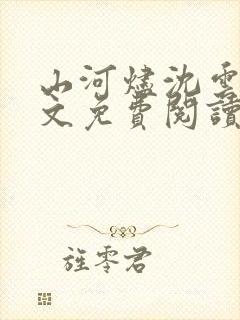 山河燼沈雲
文免費閱讀
旌零君